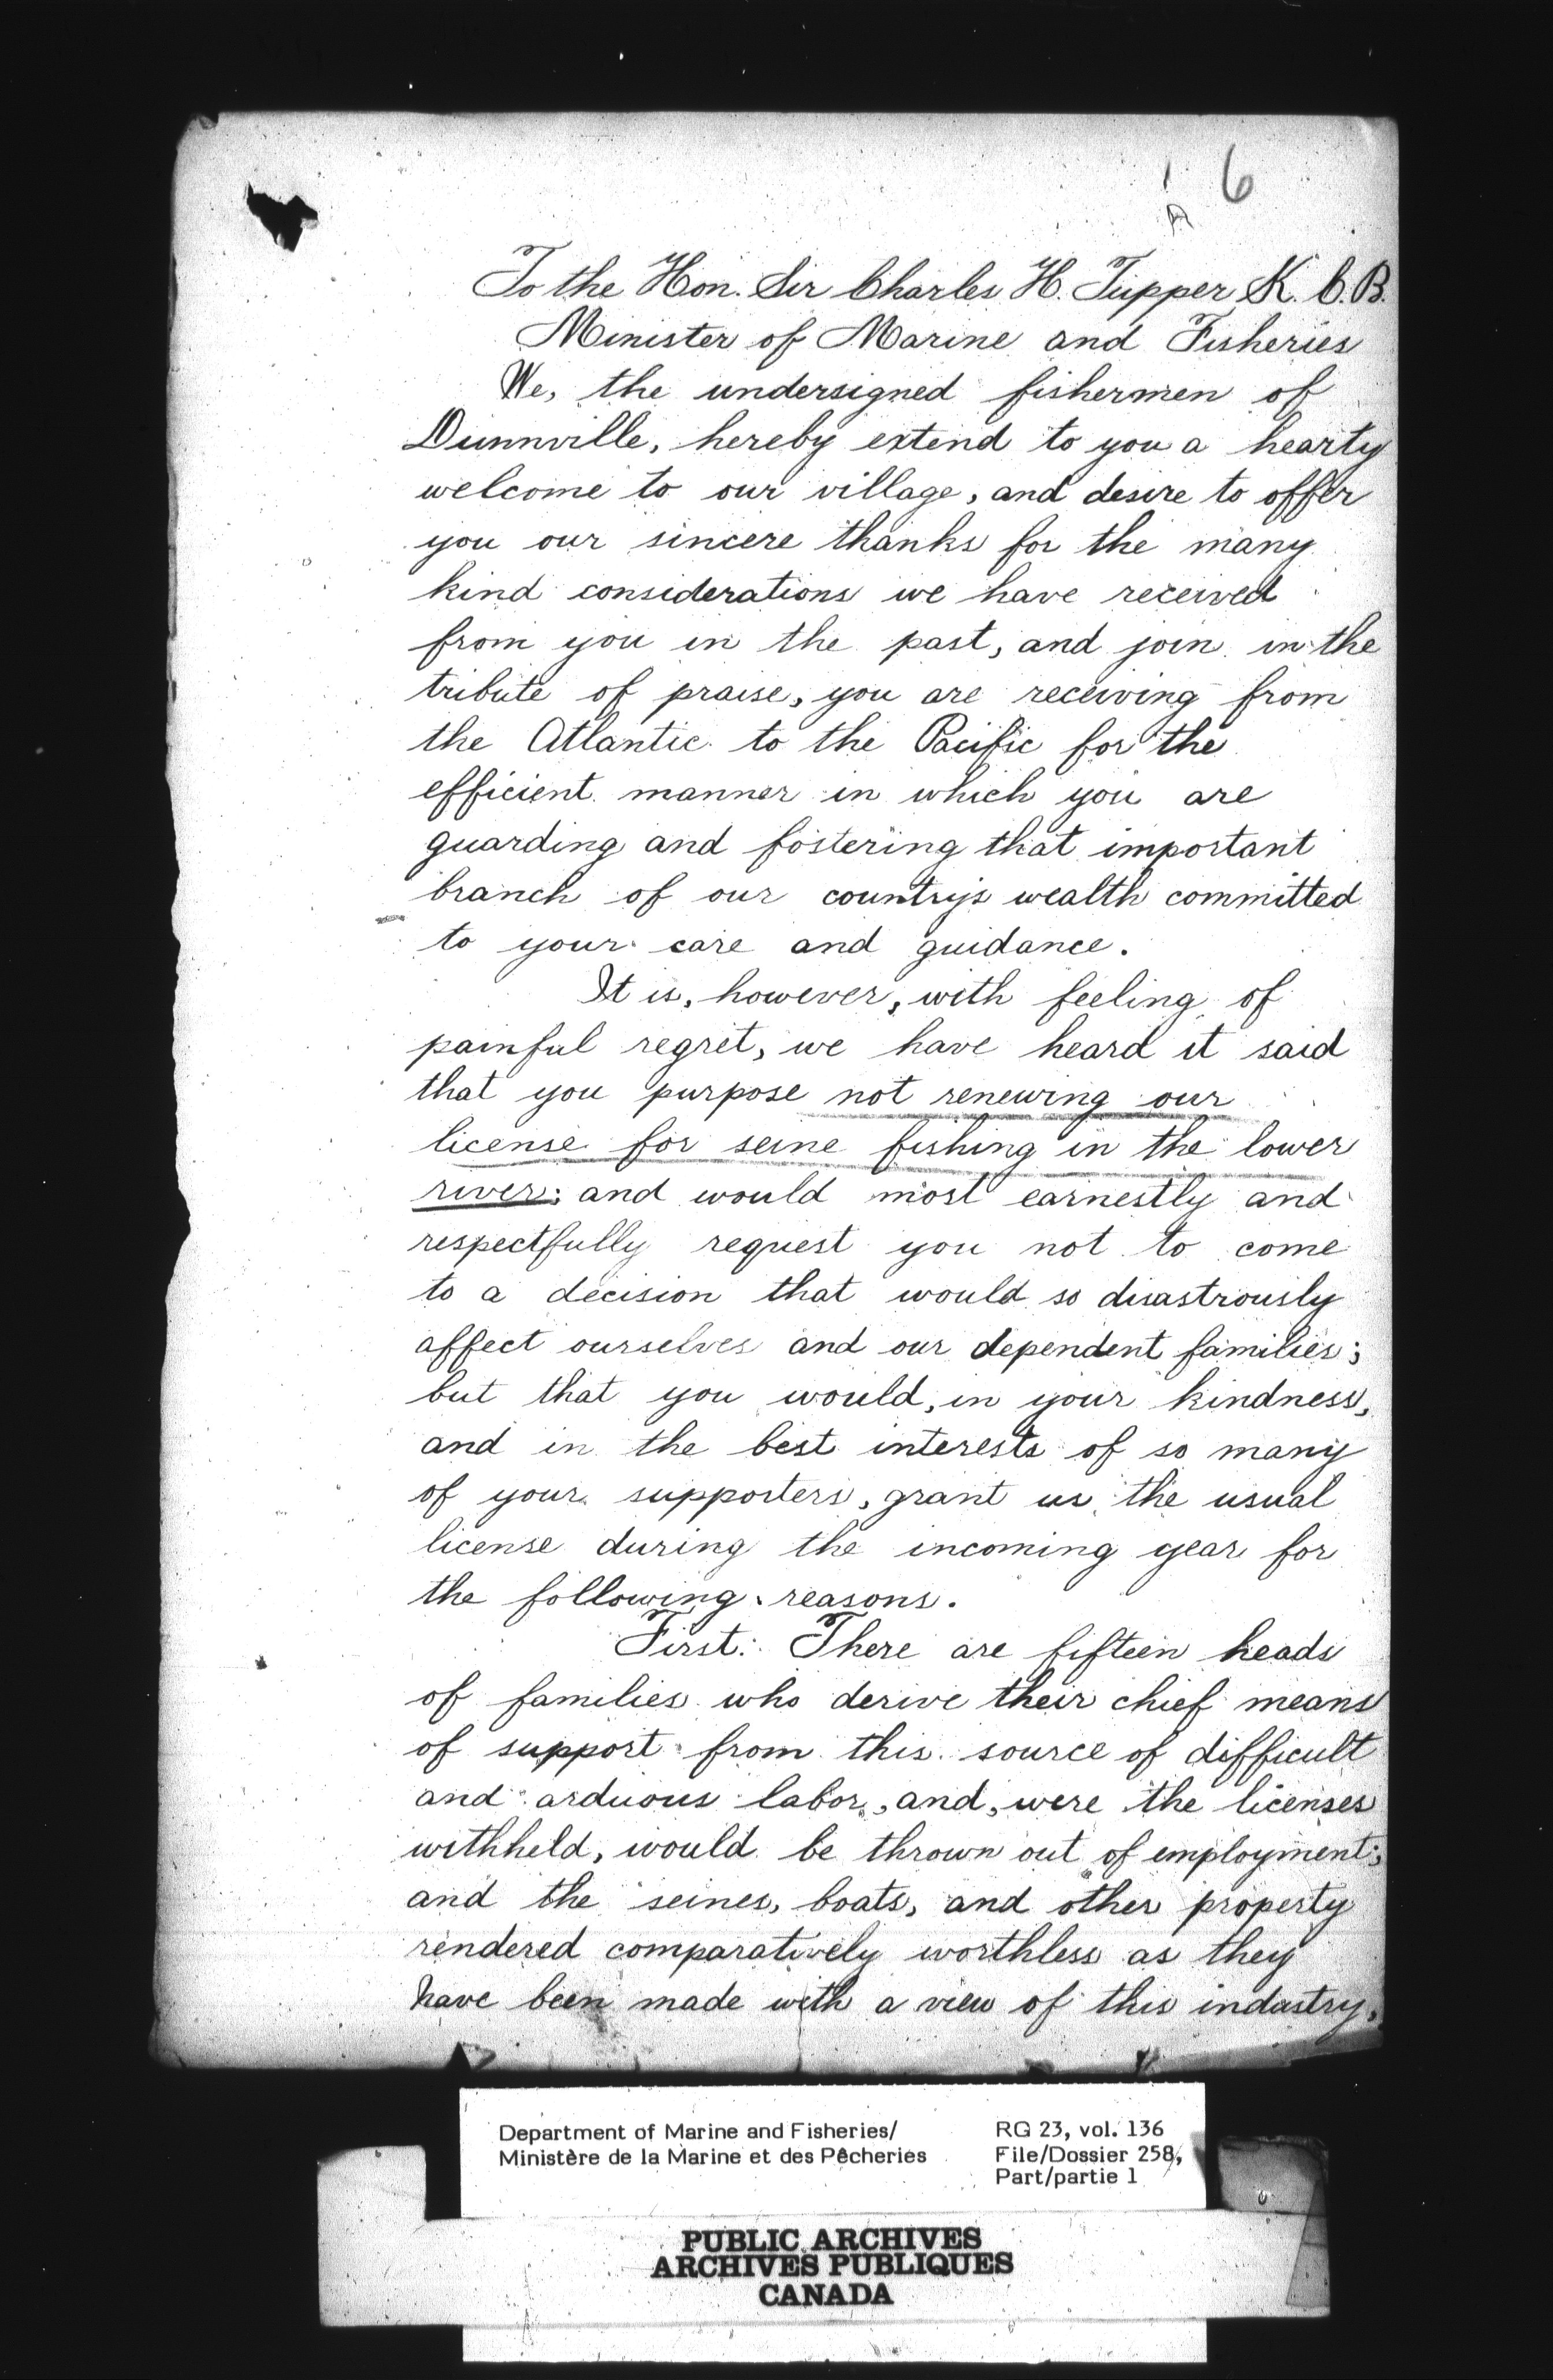 6
To the Hon. Sir Charles H. Tupper K. C. B.
Minister of Marine and Fisheries
We, the undersigned fishermen of
Dunnville, hereby extend to you a hearty
welcome to our village, and desire to offer
you our sincere thanks for the many
kind considerations we have received
from you in the past, and join in the
tribute of praise, you are receiving from
the Atlantic to the Pacific for the
efficient manner in which you are
guarding and fostering that important
branch of our country's wealth committed
to your care and guidance.
It is, however, with feeling of
painful regret, we have heard it said
that you purpose not renewing our
license for seine fishing in the lower
river; and would most earnestly and
respectfully request you not to come
to a decision that would so disastrously
affect ourselves and our dependent families;
but that you would, in your kindness,
and in the best interests of so many
of your supporters, grant us the usual
license during the incoming year for
the following reasons.
First: There are fifteen heads
of families who derive their chief means
of support from this source of difficult
and arduous labor, and, were the licenses
withheld, would be thrown out of employment;
and the seines, boats, and other property
rendered comparatively worthless as they
have been made with a view of this industry,
Department of Marine and Fisheries/
Ministère de la Marine et des Pêcheries
RG 23, vol. 136
File/Dossier 258,
Part/partie 1
PUBLIC ARCHIVES
ARCHIVES PUBLIQUES
CANADA